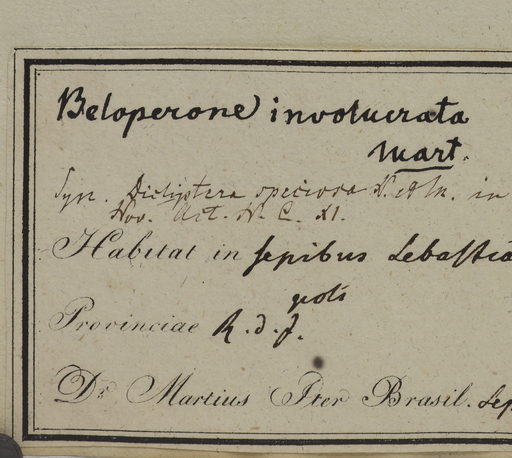 Beloperone involucrata
Mart.
Syn. Dicliptera speciosa N. & M. in
Nov. Act. N. C. XI.
Habitat in sepibus Sebastia
Provinciae R. d. J.
Dr. Martius Iter Brasil. Sep